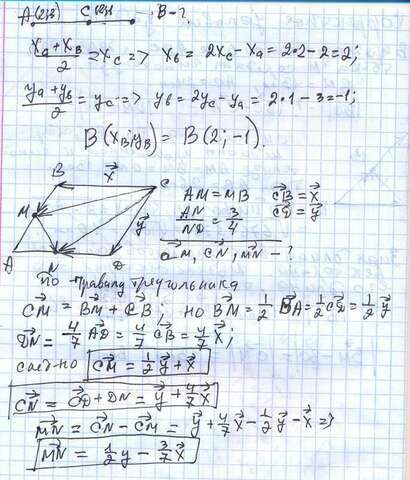 A(2;3) C(2;1) B-?
(x_a + x_B)/2 = x_c => x_b = 2x_c - x_a = 2·2-2=2;
(y_a + y_b)/2 = y_c => y_b = 2y_c - y_a = 2·1-3=-1;
B(x_B; y_B) = B(2; -1).
B x⃗ C
M y⃗
A N D
AM = MB C⃗B = x⃗
AN/ND = 3/4 C⃗D = y⃗
C⃗M, C⃗N, M⃗N - ?
по правилу треугольника
C⃗M = B⃗M + C⃗B; но B⃗M = 1/2 B⃗A = 1/2 C⃗D = 1/2 y⃗
D⃗N = 4/7 A⃗D = 4/7 C⃗B = 4/7 x⃗;
C⃗M = 1/2 y⃗ + x⃗
C⃗N = C⃗D + D⃗N = y⃗ + 4/7 x⃗
M⃗N = C⃗N - C⃗M = y⃗ + 4/7 x⃗ - 1/2 y⃗ - x⃗ =>
M⃗N = 1/2 y - 3/7 x⃗